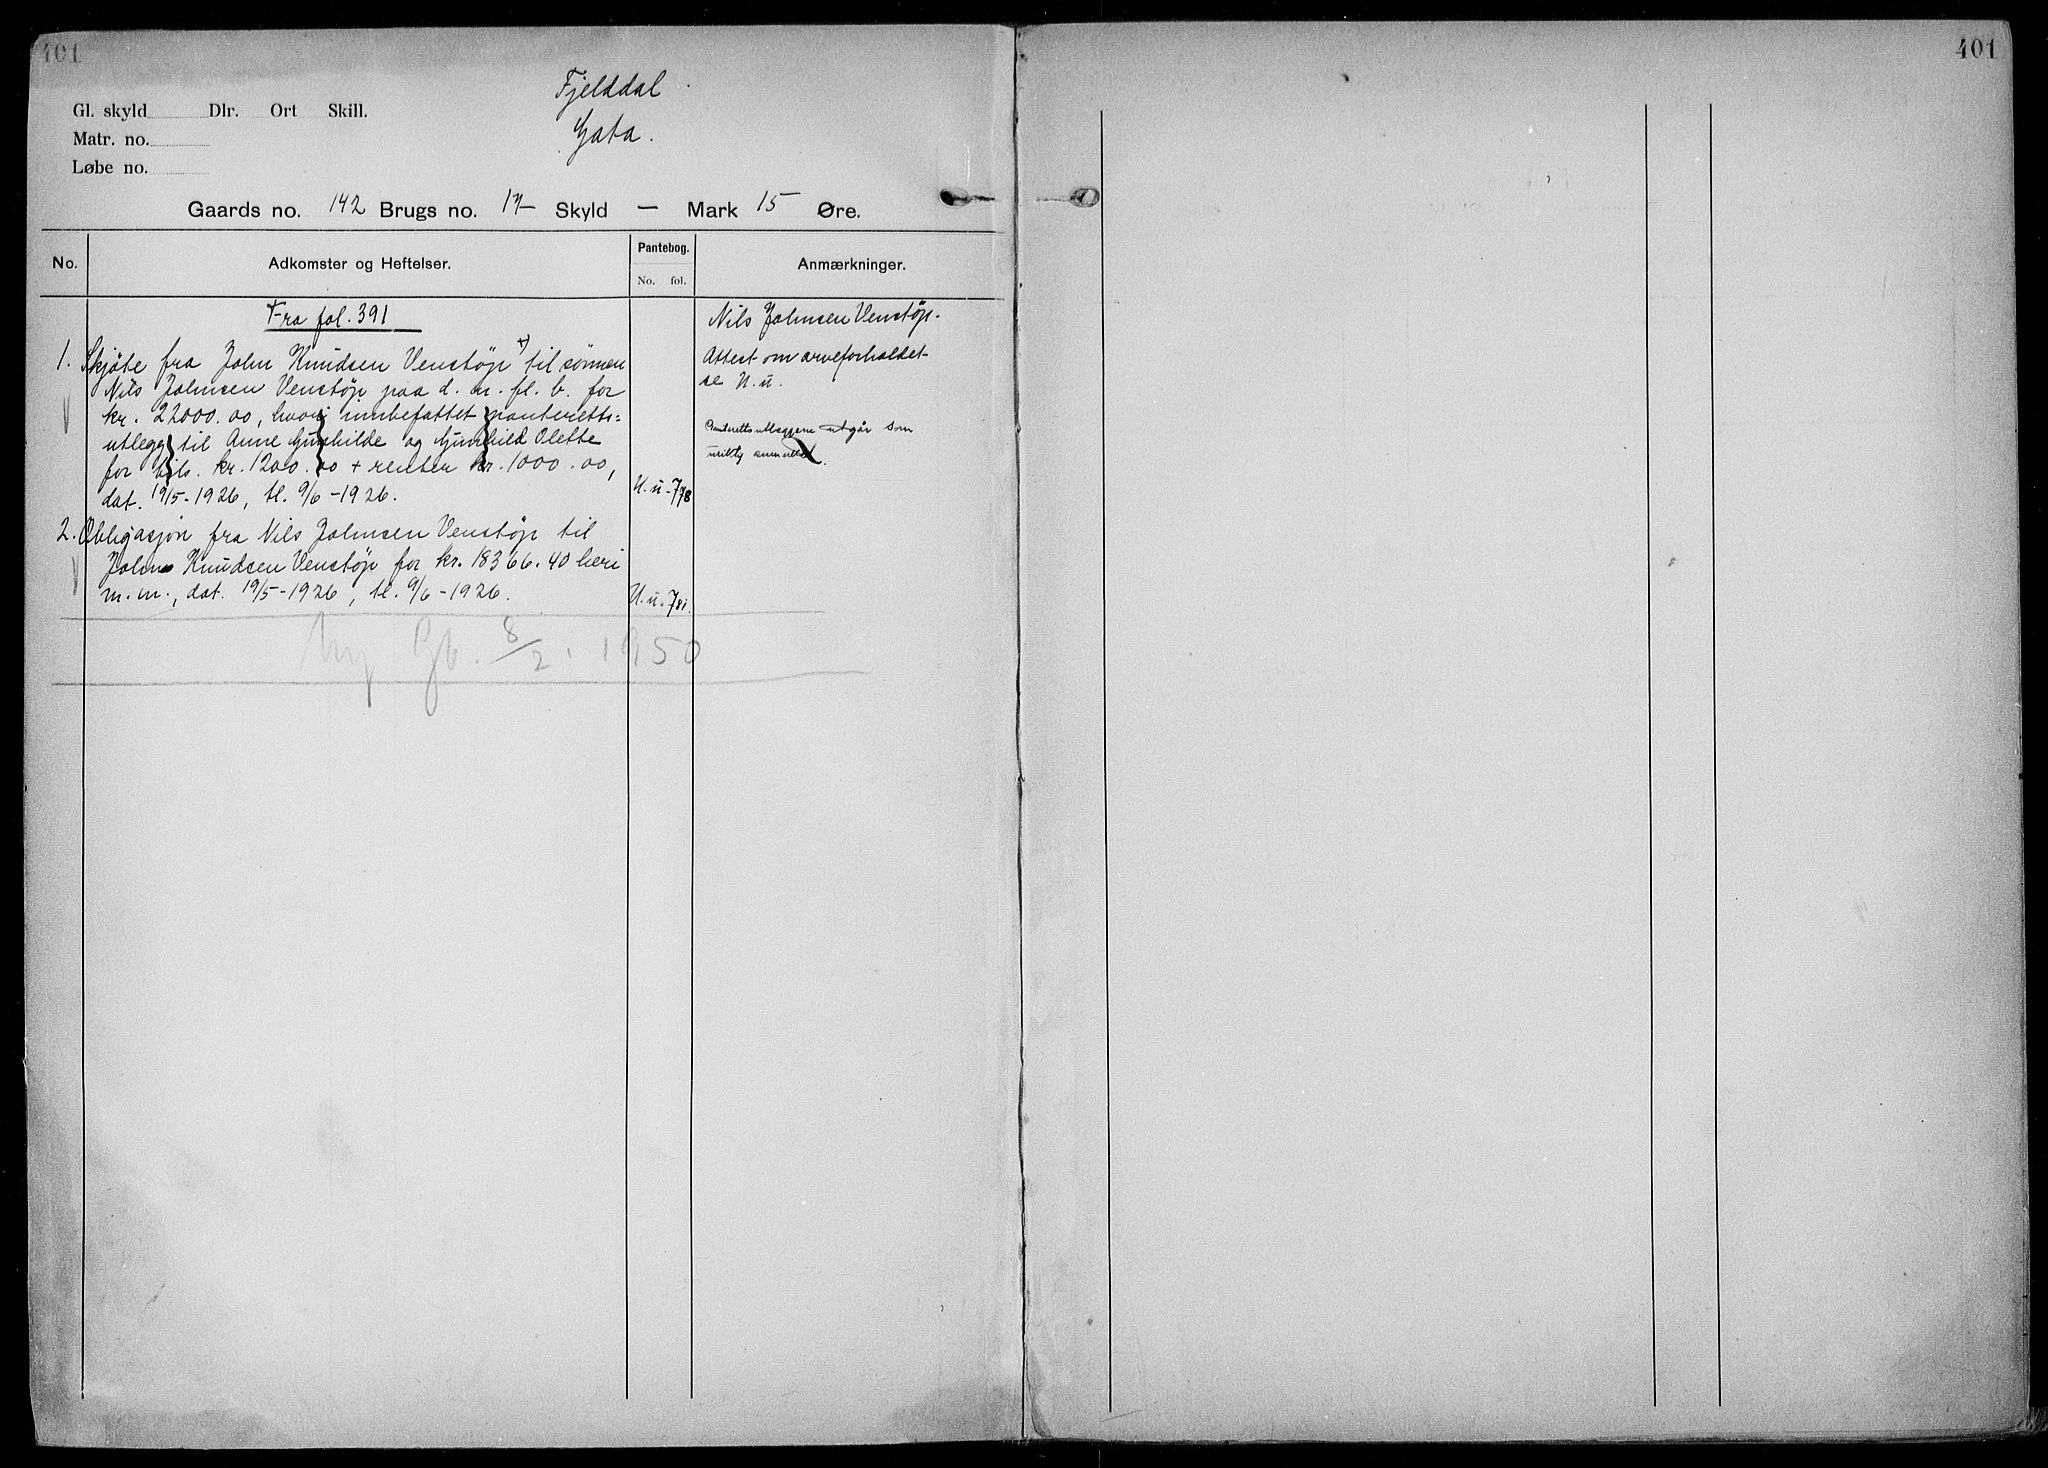 401
401
Fjelddal
Gata.
Gl. skyld Dlr. Ort Skill.
Matr. no.
Løbe no.
Gaards no. 142 Brugs no. 17 Skyld — Mark 15 Øre.
No. Adkomster og Heftelser. Pantebog. No. fol. Anmærkninger.
Fra fol. 391
1. Skjøte fra John Knudsen Venstøp +) til sønnen
Nils Johnsen Venstøp paa d. m. fl. b. for
kr. 22000.00, hvori innbefattet panteretts-
utlegg til Anne Gunhilde og Gunhild Olette
for tils. kr. 1200.00 + renter kr. 1000.00,
dat. 19/5-1926, tl. 9/6-1926. U. u-778
2. Obligasjon fra Nils Johnsen Venstøp til
John Knudsen Venstøp for kr. 18366.40 heri
m. m., dat. 19/5-1926, tl. 9/6-1926. U. u-781.
Ny Gb. 8/2. 1950
Nils Johnsen Venstøp.
Attest om arveforholdet
se U. u.
Panterettsutleggene utgår som
urikty anmerket.